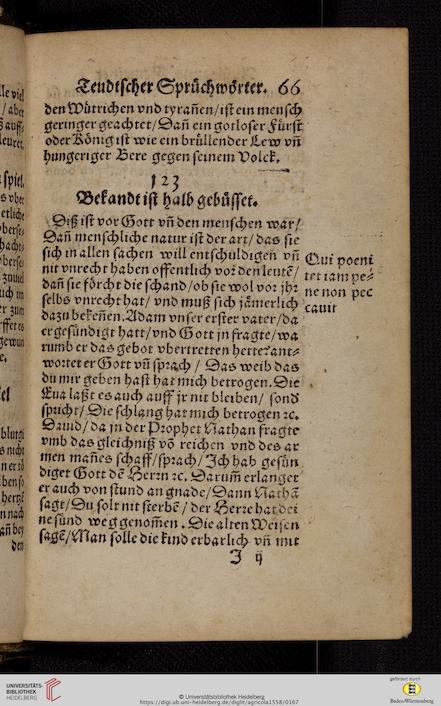 Teudtscher Sprüchwörter. 66
den Wütrichen vnd tyrañen/ist ein mensch
geringer geachtet/Dañ ein gotloser Fürst
oder König ist wie ein brüllender Lew vñ
hungeriger Bere gegen seinem Volck.
123
Bekandt ist halb gebüsset.
Diß ist vor Gott vñ den menschen war/
Dañ menschliche natur ist der art/das sie
sich in allen sachen will entschuldigen vñ
nit vnrecht haben offentlich vor den leutē/
dañ sie förcht die schand/ob sie wol vor jhr
selbs vnrecht hat/vnd muß sich jämerlich
dazu bekeñen. Adam vnser erster vater/da
er gesündigt hatt/vnd Gott jn fragte/wa
rumb er das gebot vbertretten hette? ant-
wortet er Gott vñ sprach / Das weib das
du mir geben hast hat mich betrogen. Die
Eua laßt es auch auff jr nit bleiben/ sond
spricht/Die schlang hat mich betrogen ꝛc.
Dauid/da jn der Prophet Nathan fragte
vmb das gleichniß vō reichen vnd des ar
men mañes schaff/sprach/Ich hab gesün
diget Gott dē Herrn ꝛc. Darum̃ erlanget
er auch von stund an gnade/Dann Nathā
sagt/Du solt nit sterbē/der Herre hat dei
ne sünd weg genom̃en. Die alten Weisen
sagē/Man solle die kind erbarlich vñ mit
J ij
Qui poeni
tet iam pe-
ne non pec
cauit
UNIVERSITÄTS-
BIBLIOTHEK
HEIDELBERG
© Universitätsbibliothek Heidelberg
https://digi.ub.uni-heidelberg.de/diglit/agricola1558/0167
gefördert durch
Baden-Württemberg